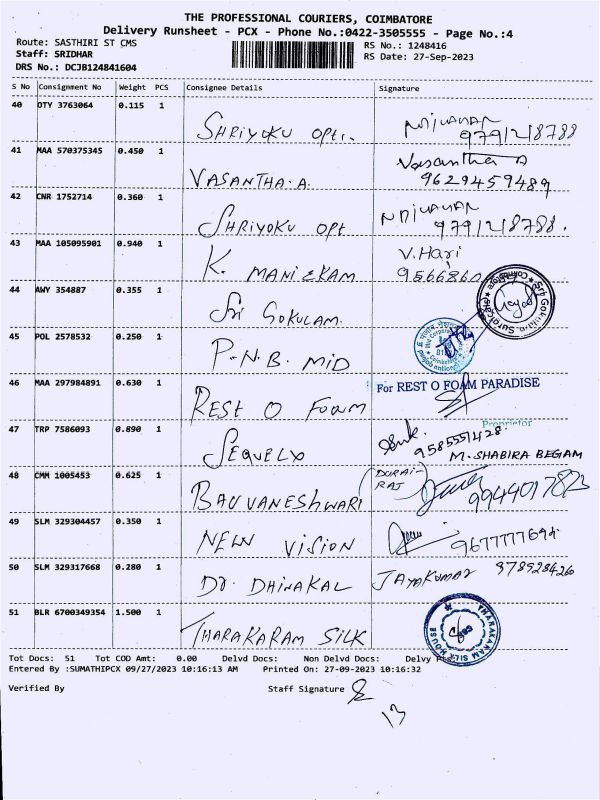 THE PROFESSIONAL COURIERS, COIMBATORE
Delivery Runsheet - PCX - Phone No.:0422-3505555 - Page No.:4
Route: SASTHIRI ST CMS
RS No.: 1248416
Staff: SRIDHAR
RS Date: 27-Sep-2023
DRS No.: DCJB124841604
S No Consignment No Weight PCS Consignee Details Signature
40 DTY 3763064 0.115 1
SHRIYOKU OPTI. 9791218788
41 MAA 570375345 0.450 1
VASANTHA.A. Vasantha A
9629459489
42 CNR 1752714 0.360 1
SHRIYOKU OPT 9791218788.
43 MAA 105095901 0.940 1
K. MANIEKAM V.Hari
9566860
44 AWY 354887 0.355 1
Sri GOKULAM.
45 POL 2578532 0.250 1
P.N.B. MID
46 MAA 297984891 0.630 1
REST O FOAM For REST O FOAM PARADISE
Proprietor
47 TRP 7586093 0.890 1
SEQUELX 9585551428.
M.SHABIRA BEGAM
48 CMM 1005453 0.625 1
BAUVANESHWARI (DURAI-
RAJ 9944017823
49 SLM 329304457 0.350 1
NEW VISION 9677777694
50 SLM 329317668 0.280 1
Dr. DHINAKAL JAYAKUMAR 9789284260
51 BLR 6700349354 1.500 1
THARAKARAM SILK THARAKARAM SILK HOUSE
Tot Docs: 51 Tot COD Amt: 0.00 Delvd Docs: Non Delvd Docs: Delvy
Entered By :SUMATHIPCX 09/27/2023 10:16:13 AM Printed On: 27-09-2023 10:16:32
Verified By Staff Signature
13